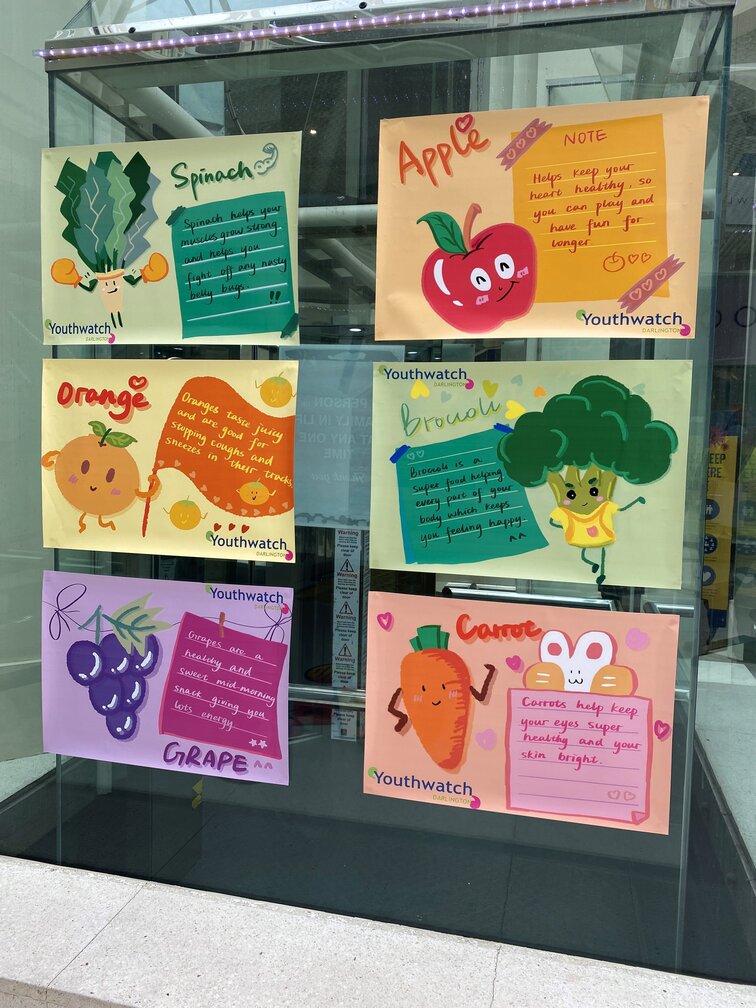 Spinach
Spinach helps your
muscles grow strong
and helps you
fight off any nasty
belly bugs.
!!
Youthwatch
DARLINGTON
Apple
NOTE
Helps keep your
heart healthy, so
you can play and
have fun for
longer
Youthwatch
DARLINGTON
Orange
Oranges taste juicy
and are good for
stopping coughs and
sneezes in their tracks.
Youthwatch
DARLINGTON
Youthwatch
DARLINGTON
Broccoli
Broccoli is a
super food helping
every part of your
body which keeps
you feeling happy.
^^
Youthwatch
DARLINGTON
Grapes are a
healthy and
sweet mid-morning
snack giving you
lots energy
GRAPE ^^
Carrot
Carrots help keep
your eyes super
healthy and your
skin bright.
Youthwatch
DARLINGTON
Warning
Please keep
clear of
door
Warning
Warning
Warning